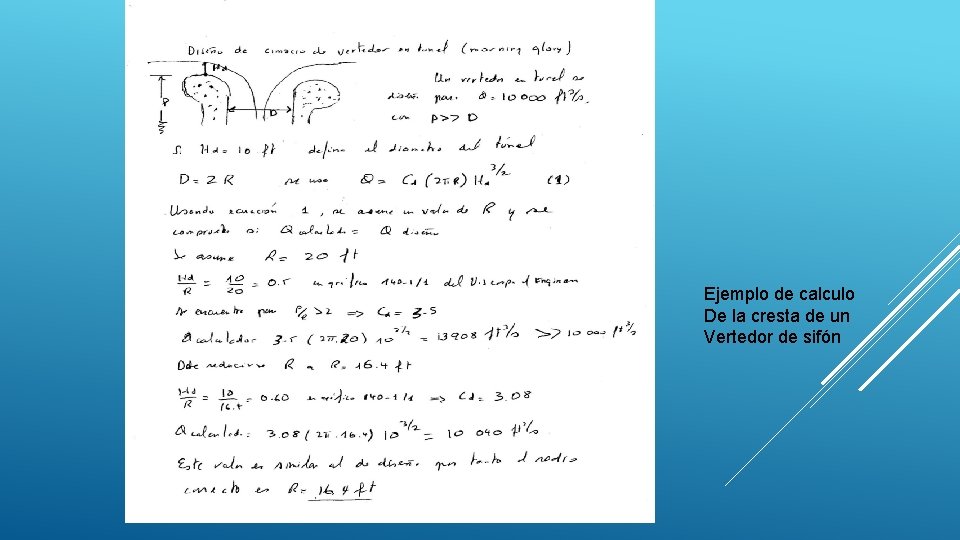 Diseño de cimacio de vertedor en tunel (morning glory)
Hd
P
D
Un vertedor en tunel se
diseña para Q = 10 000 ft³/s,
con P >> D
Si Hd = 10 ft defina el diametro del túnel
D = 2 R se usa Q = Cd (2πR) Hd^3/2 (1)
Usando ecuación 1, se asume un valor de R y se
comprueba si Q calculado = Q diseño
Se asume R = 20 ft
Hd/R = 10/20 = 0.5 en gráfico 140-1/1 del U.S. Corps of Engineers
se encuentra para P/R > 2 ⇒ Cd = 3.5
Q calculado = 3.5 (2π.20) 10^3/2 = 13908 ft³/s >> 10 000 ft³/s
Debe reducirse R a R = 16.4 ft
Hd/R = 10/16.4 = 0.60 en gráfico 140-1/1 ⇒ Cd = 3.08
Q calculado = 3.08 (2π.16.4) 10^3/2 = 10 040 ft³/s
Este valor es similar al de diseño por tanto el radio
correcto es R = 16.4 ft
Ejemplo de calculo
De la cresta de un
Vertedor de sifón